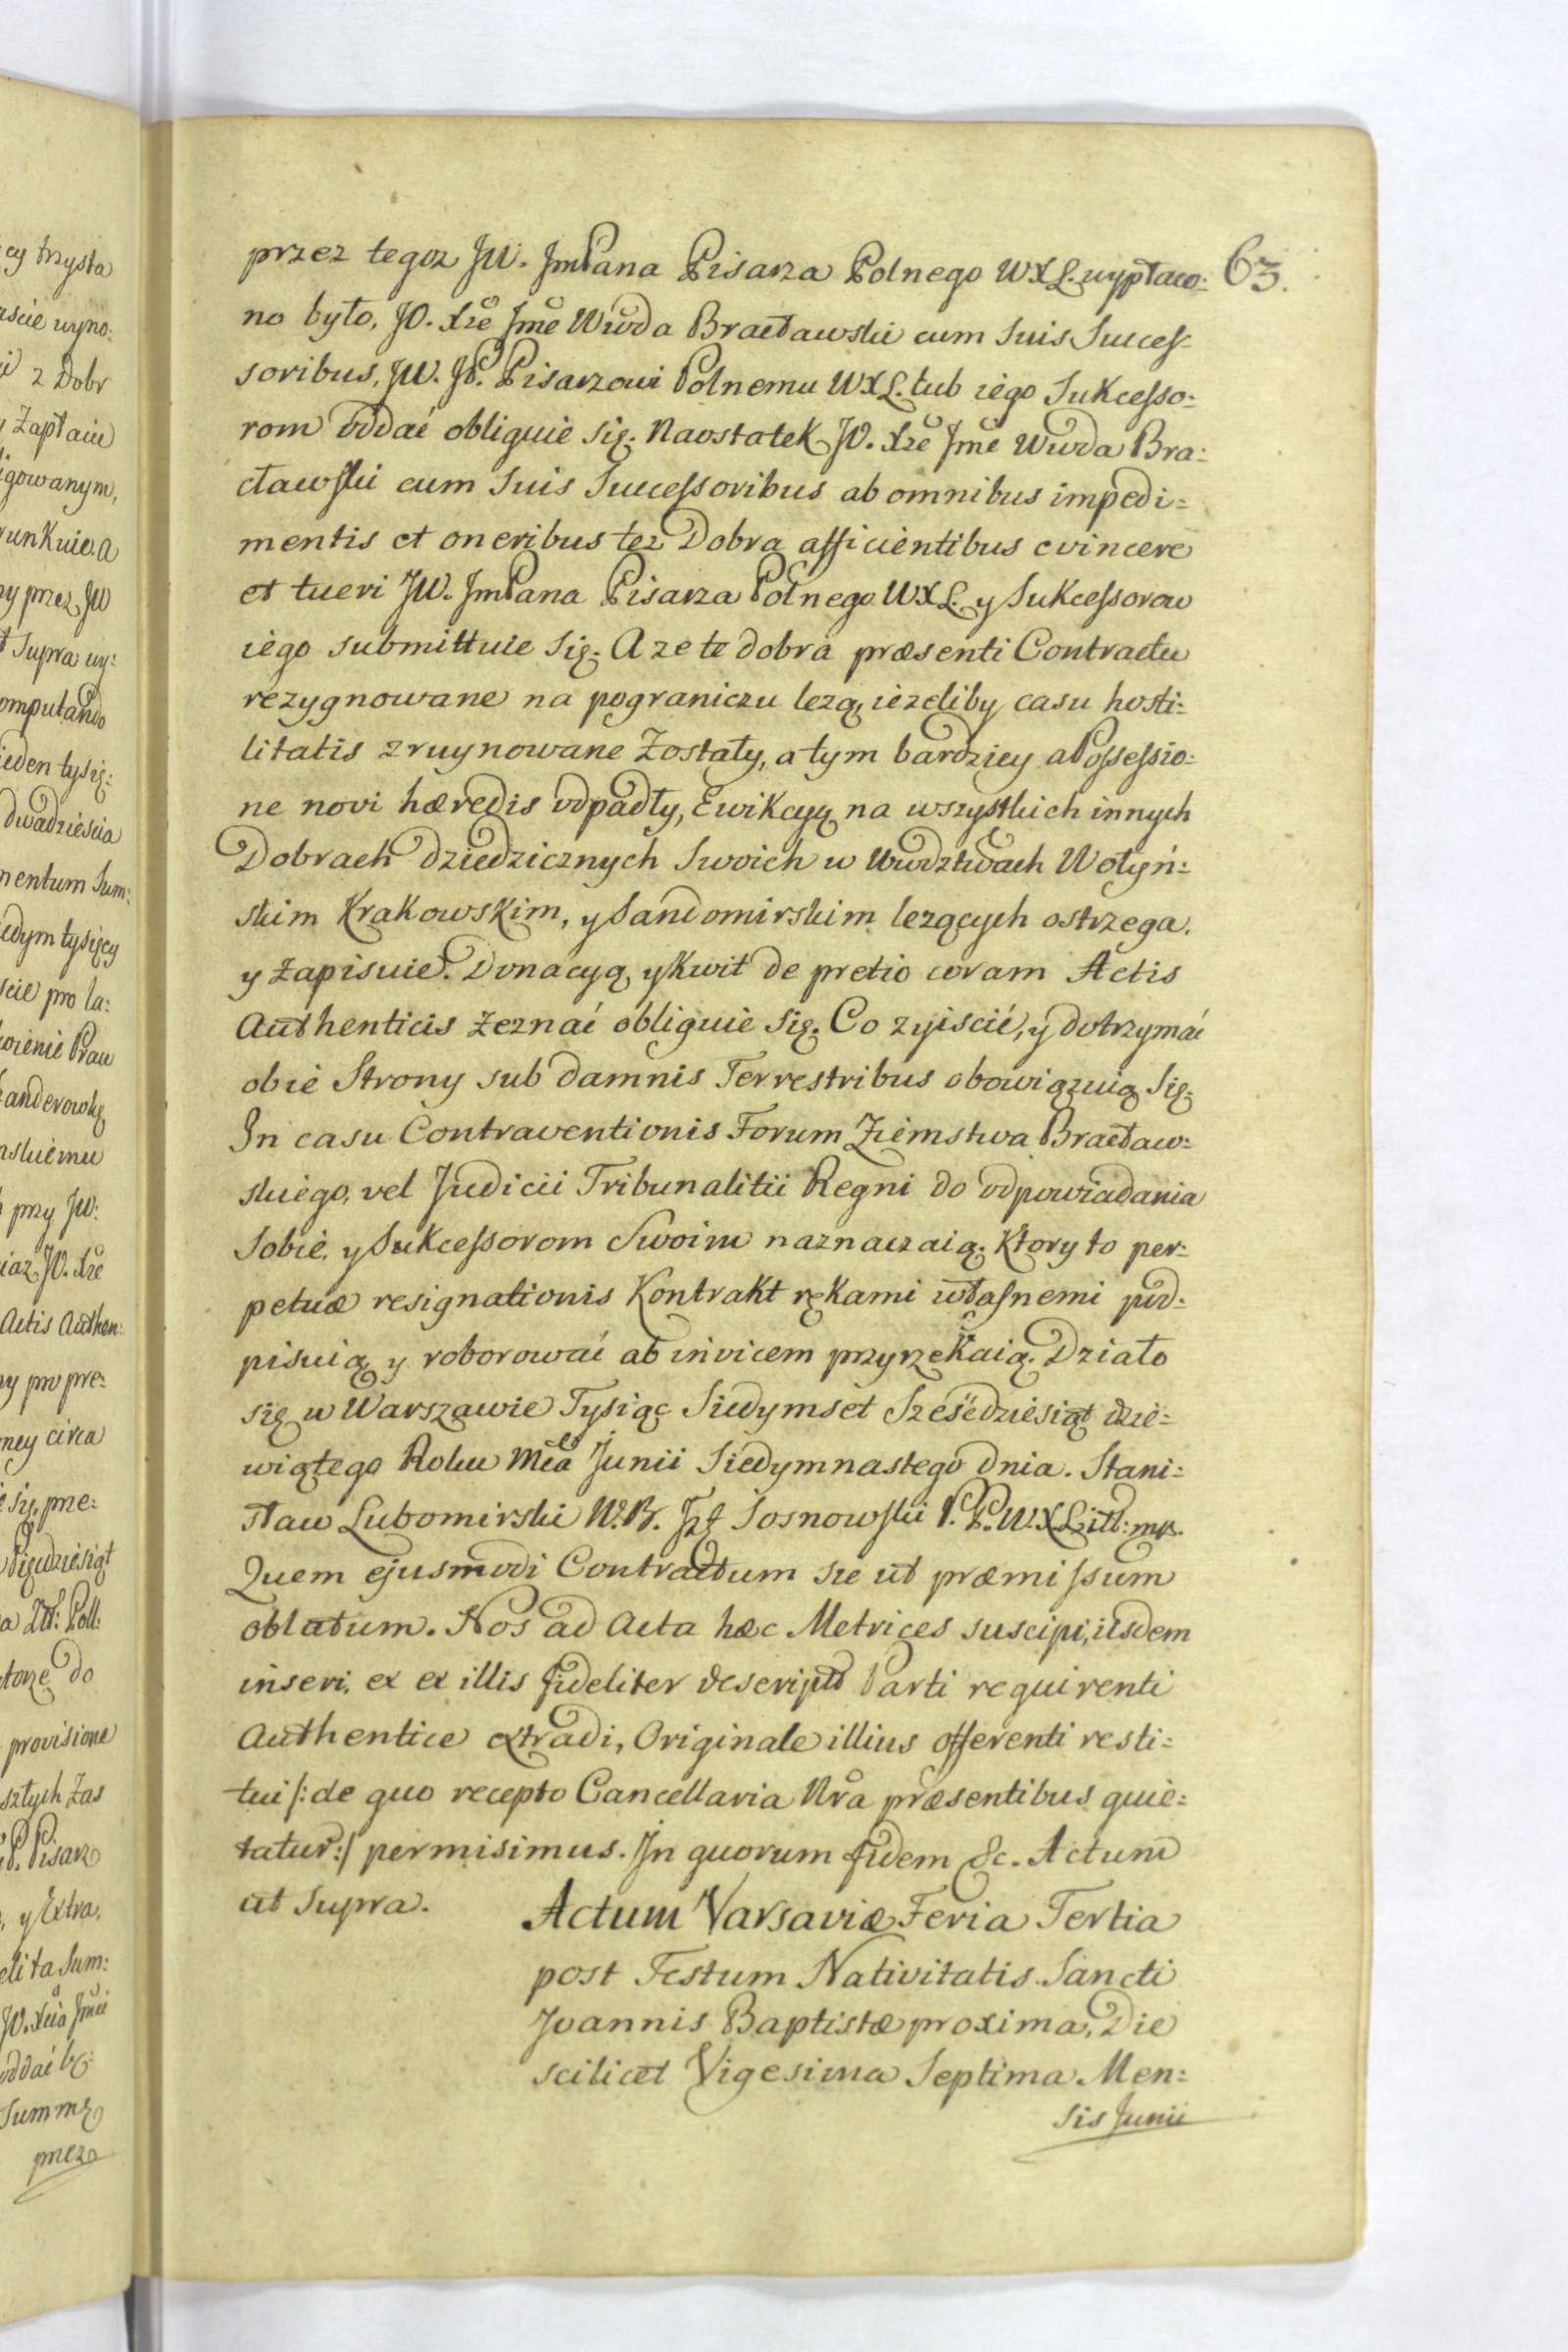 63.
przez tegoz JW. JmPana Pisarza Polnego WXL. wypłaco:
no było, JO. Xże Jme Wwda Bracławski cum Suis Succes-
soribus, JW. JP. Pisarzowi Polnemu WXL. lub iego Sukcesso:
rom oddać obliguie Się. Naostatek JO. Xże Jme Wwda Bra:
cławski cum Suis Successoribus ab omnibus impedi:
mentis et oneribus tez Dobra afficientibus evincere
et tueri JW. JmPana Pisarza Polnego WXL. y Sukcessorow
iego submittuie Się. A ze te dobra præsenti Contractu
rezygnowane na pograniczu lezą, iezeliby casu hosti:
litatis zruynowane Zostały, a tym bardziey a Possessio:
ne novi hæredis odpadły, Ewikcyą na wszystkich innych
Dobrach dziedzicznych Swoich w Wwdztwach Wołyń:
skim Krakowskim, y Sandomirskim lezących ostrzega.
y Zapisuie. Donacyą, y Kwit de pretio coram Actis
Authenticis Zeznać obliguie Się. Co ziiscić, y dotrzymać
obie Strony sub damnis Terrestribus obowiązuią Się.
In casu Contraventionis Forum Ziemstwa Bracław:
skiego, vel Judicii Tribunalitii Regni do odpowiadania
Sobie, y Sukcessorom Swoim naznaczaią. Ktory to per:
petuæ resignationis Kontrakt rękami własnemi pod:
pisuią y roborować ab invicem przyrzekaią. Działo
się w Warszawie Tysiąc Siedymset Sześćdziesiąt dzie:
wiątego Roku Mca Junii Siedymnastego dnia. Stani:
sław Lubomirski W. B. Jzf Sosnowski P. P. W. X. Litt: mp.
Quem ejusmodi Contractum sic ut præmissum
oblatum. Nos ad Acta hæc Metrices suscipi, iisdem
inseri, ex ex illis fideliter descriptū Parti requirenti
Authentice extradi, Originale illius offerenti resti:
tui /: de quo recepto Cancellaria Nra præsentibus quie:
tatur :/ permisimus. In quorum fidem &c. Actum
ut Supra.
Actum Varsaviæ Feria Tertia
post Festum Nativitatis Sancti
Joannis Baptistæ proxima, Die
scilicet Vigesima Septima Men:
sis Junii